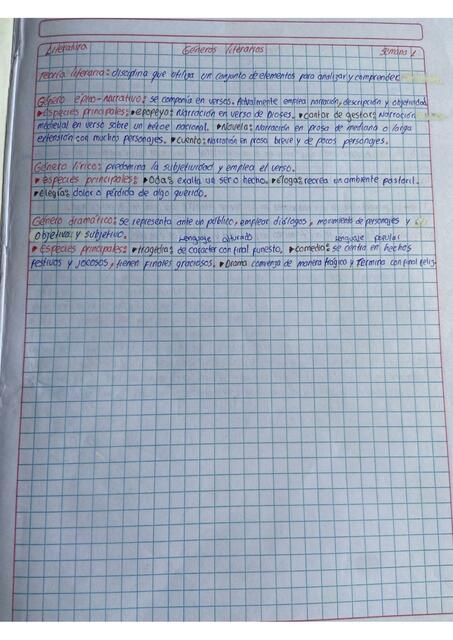 Literatura Géneros literarios Semana 1
Teoría literaria: disciplina que utiliza un conjunto de elementos para analizar y comprender
Género épico-Narrativo: se componía en versos. Actualmente emplea narración, descripción y objetividad
▸Especies principales: ▸epopeya: Narración en verso de Dioses. ▸cantar de gestar: Narración
medieval en verso sobre un héroe nacional. ▸Novela: Narración en prosa de mediana o larga
extensión con muchos personajes. ▸cuento: Narración en prosa breve y de pocos personajes.
Género lírico: predomina la subjetividad y emplea el verso.
▸Especies principales: ▸Oda: exalta un ser o hecho. ▸égloga: recrea un ambiente pastoril.
▸elegía: dolor o pérdida de algo querido.
Género dramático: se representa ante un público, emplear diálogos, movimiento de personajes y
objetivo y subjetivo. Lenguaje culturado Lenguaje popular
▸Especies principales: ▸tragedia: de carácter con final funesto. ▸comedia: se centra en hechos
festivos y jocosos, tienen finales graciosos. ▸Drama comienza de manera trágico y termina con final feliz.